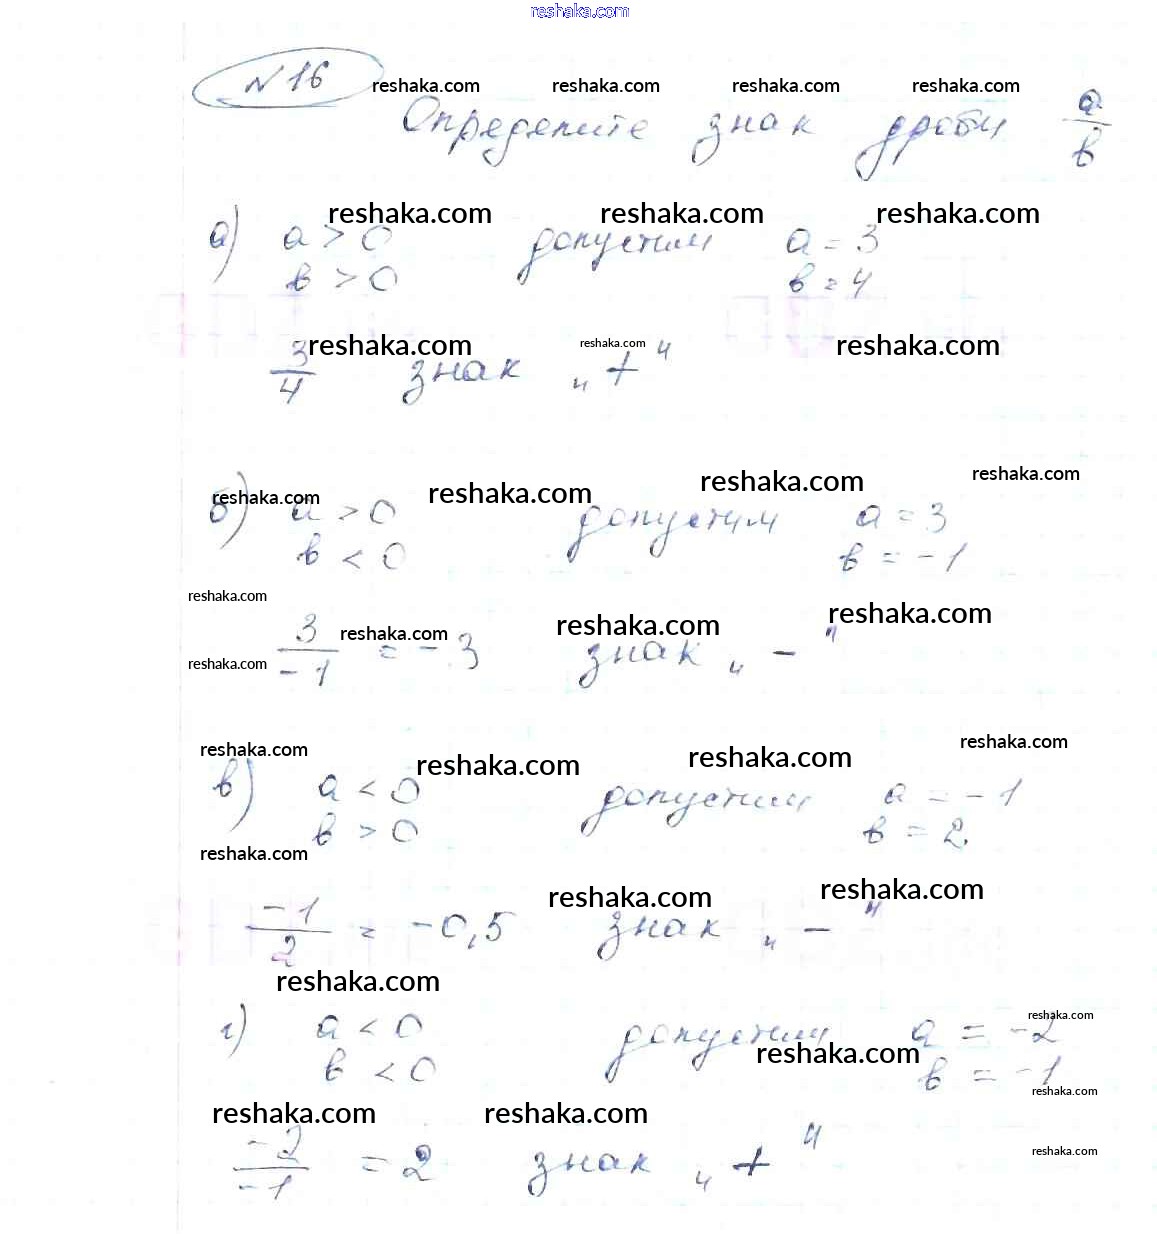 reshaka.com
№ 16
reshaka.com reshaka.com reshaka.com reshaka.com
Определите знак дроби a/b
reshaka.com reshaka.com reshaka.com
а) a > 0 допустим a = 3
b > 0 b = 4
reshaka.com reshaka.com reshaka.com
3/4 знак „+"
reshaka.com reshaka.com reshaka.com reshaka.com
б) a > 0 допустим a = 3
b < 0 b = -1
reshaka.com reshaka.com reshaka.com
3/-1 = -3 знак „-"
reshaka.com reshaka.com
reshaka.com reshaka.com reshaka.com reshaka.com
в) a < 0 допустим a = -1
b > 0 b = 2
reshaka.com reshaka.com reshaka.com
-1/2 = -0,5 знак „-"
reshaka.com
reshaka.com
г) a < 0 допустим a = -2
b < 0 b = -1
reshaka.com reshaka.com
reshaka.com reshaka.com
-2/-1 = 2 знак „+"
reshaka.com